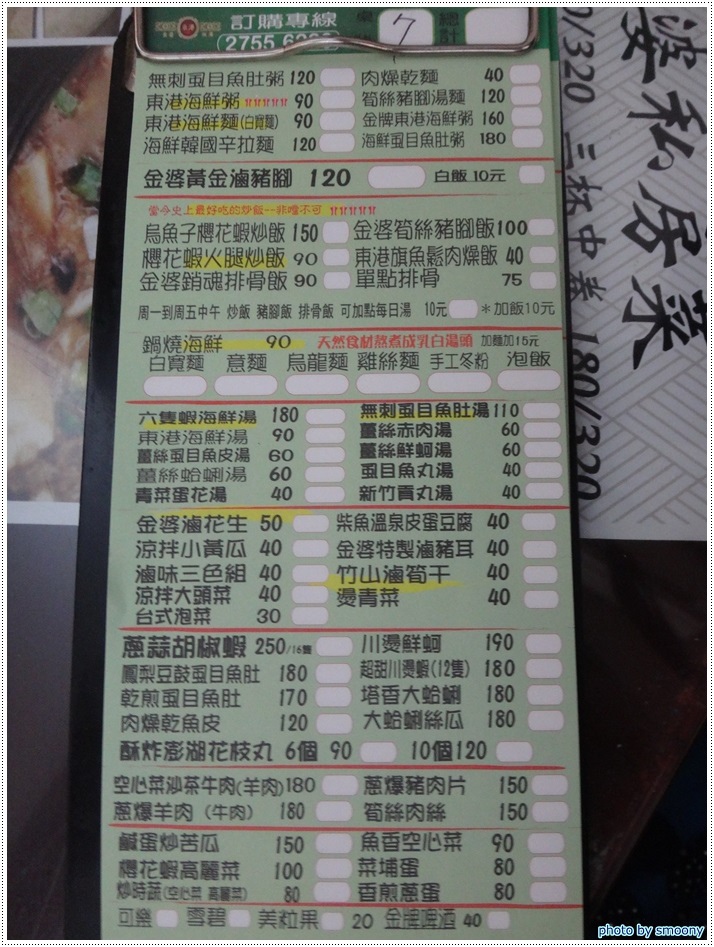 訂購專線 7 總計
2755
無刺虱目魚肚粥 120 肉燥乾麵 40
東港海鮮粥 90 筍絲豬腳湯麵 120
東港海鮮麵(白寬麵) 90 金牌東港海鮮粥 160
海鮮韓國辛拉麵 120 海鮮虱目魚肚粥 180
金婆黃金滷豬腳 120 白飯 10元
當今史上最好吃的炒飯--非嚐不可
烏魚子櫻花蝦炒飯 150 金婆筍絲豬腳飯 100
櫻花蝦火腿炒飯 90 東港旗魚鬆肉燥飯 40
金婆銷魂排骨飯 90 單點排骨 75
周一到周五中午 炒飯 豬腳飯 排骨飯 可加點每日湯 10元 *加飯10元
鍋燒海鮮 90 天然食材熬煮成乳白湯頭 加麵加15元
白寬麵 意麵 烏龍麵 雞絲麵 手工冬粉 泡飯
六隻蝦海鮮湯 180 無刺虱目魚肚湯 110
東港海鮮湯 90 薑絲赤肉湯 60
薑絲虱目魚皮湯 60 薑絲鮮蚵湯 60
薑絲蛤蜊湯 60 虱目魚丸湯 40
青菜蛋花湯 40 新竹貢丸湯 40
金婆滷花生 50 柴魚溫泉皮蛋豆腐 40
涼拌小黃瓜 40 金婆特製滷豬耳 40
滷味三色組 40 竹山滷筍干 40
涼拌大頭菜 40 燙青菜 40
台式泡菜 30
蔥蒜胡椒蝦 250/16隻 川燙鮮蚵 190
鳳梨豆鼓虱目魚肚 180 超甜川燙蝦(12隻) 180
乾煎虱目魚肚 170 塔香大蛤蜊 180
肉燥乾魚皮 120 大蛤蜊絲瓜 180
酥炸澎湖花枝丸 6個 90 10個120
空心菜沙茶牛肉(羊肉)180 蔥爆豬肉片 150
蔥爆羊肉(牛肉) 180 筍絲肉絲 150
鹹蛋炒苦瓜 150 魚香空心菜 90
櫻花蝦高麗菜 100 菜埔蛋 80
炒時蔬(空心菜 高麗菜) 80 香煎蔥蛋 80
可樂 雪碧 美粒果 20 金牌啤酒 40
婆私房菜
0/320
三杯中卷 180/320
photo by smoony